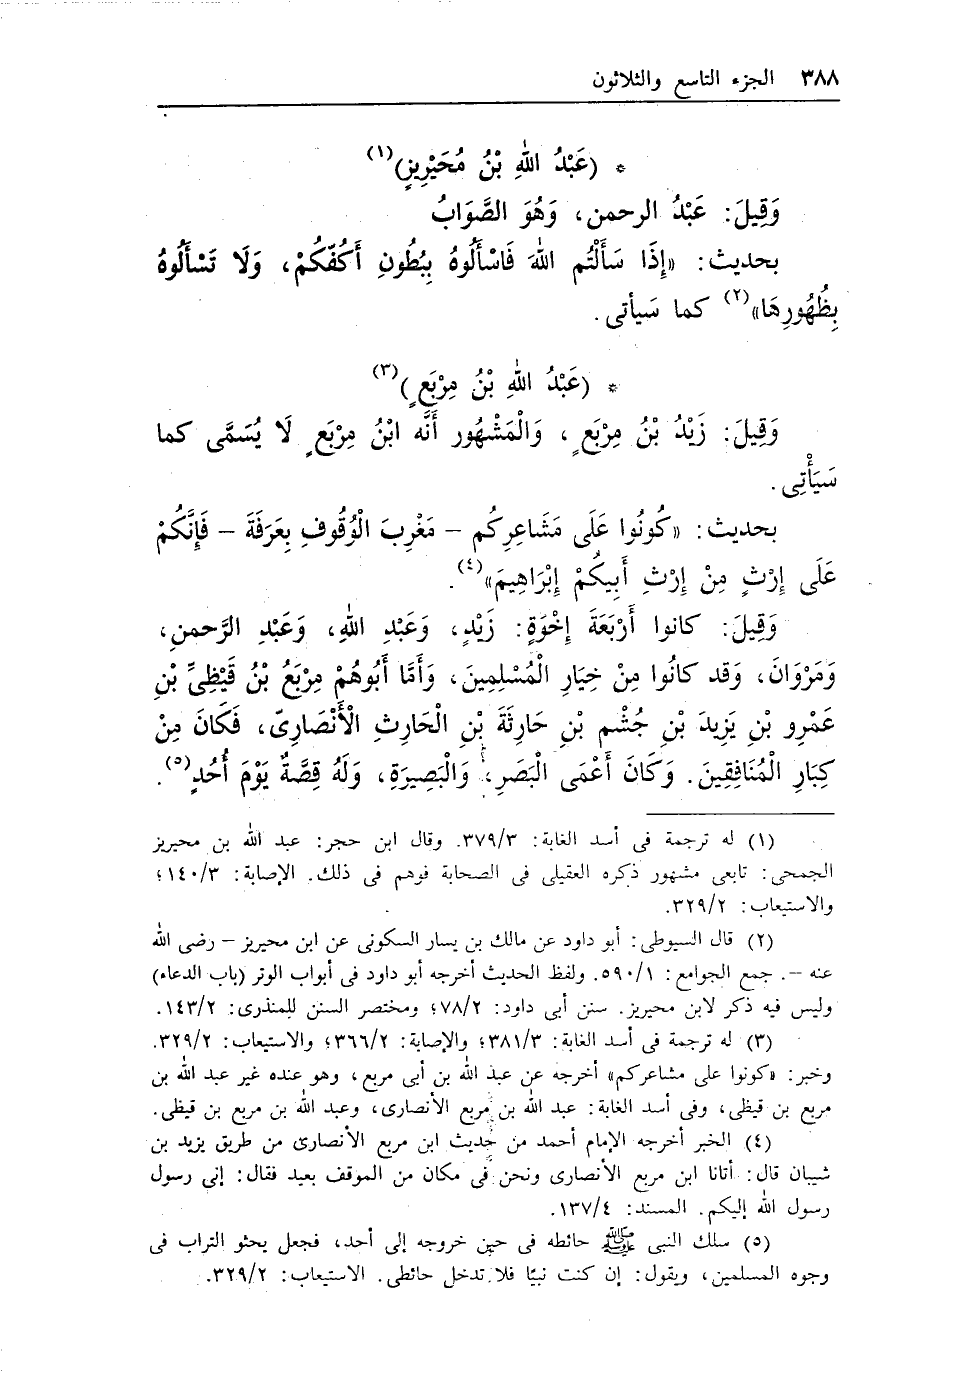 ٣٨٨ الجزء التاسع والثلاثون
* (عَبْدُ اللهِ بْنُ مُحَيْرِيزٍ)(١)
وَقِيلَ: عَبْدُ الرحمن، وَهُوَ الصَّوَابُ
بحديث: «إِذَا سَأَلْتُم اللهَ فَاسْأَلُوهُ بِبُطُونِ أَكُفّكُمْ، وَلَا تَسْأَلُوهُ
بِظُهُورِهَا»(٢) كما سَيأتى.
* (عَبْدُ اللهِ بْنُ مِرْبَعٍ)(٣)
وَقِيلَ: زَيْدُ بْنُ مِرْبَعٍ، وَالْمَشْهُور أَنَّه ابْنُ مِرْبَعٍ لَا يُسَمَّى كما
سَيَأْتِى.
بحديث: «كُونُوا عَلَى مَشَاعِرِكُم – مَغْرِبَ الْوُقُوفِ بِعَرَفَةَ – فَإِنَّكُمْ
عَلَى إِرْثٍ مِنْ إِرْثِ أَبِيكُمْ إِبْرَاهِيمَ»(٤).
وَقِيلَ: كانوا أَرْبَعَةَ إِخْوَةٍ: زَيْدٍ، وَعَبْدِ اللهِ، وَعَبْدِ الرَّحمنِ،
وَمَرْوَانَ، وَقد كانُوا مِنْ خِيَارِ الْمُسْلِمِينَ، وَأَمَّا أَبُوهُمْ مِرْبَعُ بْنُ قَيْظِىِّ بْنِ
عَمْرِو بْنِ يَزِيدَ بْنِ جُشْمِ بْنِ حَارِثَةَ بْنِ الْحَارِثِ الْأَنْصَارِىّ، فَكَانَ مِنْ
كِبَارِ الْمُنَافِقِينَ. وَكَانَ أَعْمَى الْبَصَرِ، وَالْبَصِيرَةِ، وَلَهُ قِصَّةٌ يَوْمَ أُحُدٍ(٥).
(١) له ترجمة فى أسد الغابة: ٣٧٩/٣. وقال ابن حجر: عبد الله بن محيريز
الجمحى: تابعى مشهور ذكره العقيلى فى الصحابة فوهم فى ذلك. الإصابة: ١٤٠/٣؛
والاستيعاب: ٣٢٩/٢.
(٢) قال السيوطى: أبو داود عن مالك بن يسار السكونى عن ابن محيريز – رضى الله
عنه –. جمع الجوامع: ٥٩٠/١. ولفظ الحديث أخرجه أبو داود فى أبواب الوتر (باب الدعاء)
وليس فيه ذكر لابن محيريز. سنن أبى داود: ٧٨/٢؛ ومختصر السنن للمنذرى: ١٤٣/٢.
(٣) له ترجمة فى أسد الغابة: ٣٨١/٣؛ والإصابة: ٣٦٦/٢؛ والاستيعاب: ٣٢٩/٢.
وخبر: «كونوا على مشاعركم» أخرجه عن عبد الله بن أبى مربع، وهو عنده غير عبد الله بن
مربع بن قيظى، وفى أسد الغابة: عبد الله بن مربع الأنصارى، وعبد الله بن مربع بن قيظى.
(٤) الخبر أخرجه الإمام أحمد من حديث ابن مربع الأنصارى من طريق يزيد بن
شيبان قال: أتانا ابن مربع الأنصارى ونحن فى مكان من الموقف بعيد فقال: إنى رسول
رسول الله إليكم. المسند: ١٣٧/٤.
(٥) سلك النبى ﷺ حائطه فى حين خروجه إلى أحد، فجعل يحثو التراب فى
وجوه المسلمين، ويقول: إن كنت نبيًا فلا تدخل حائطى. الاستيعاب: ٣٢٩/٢.